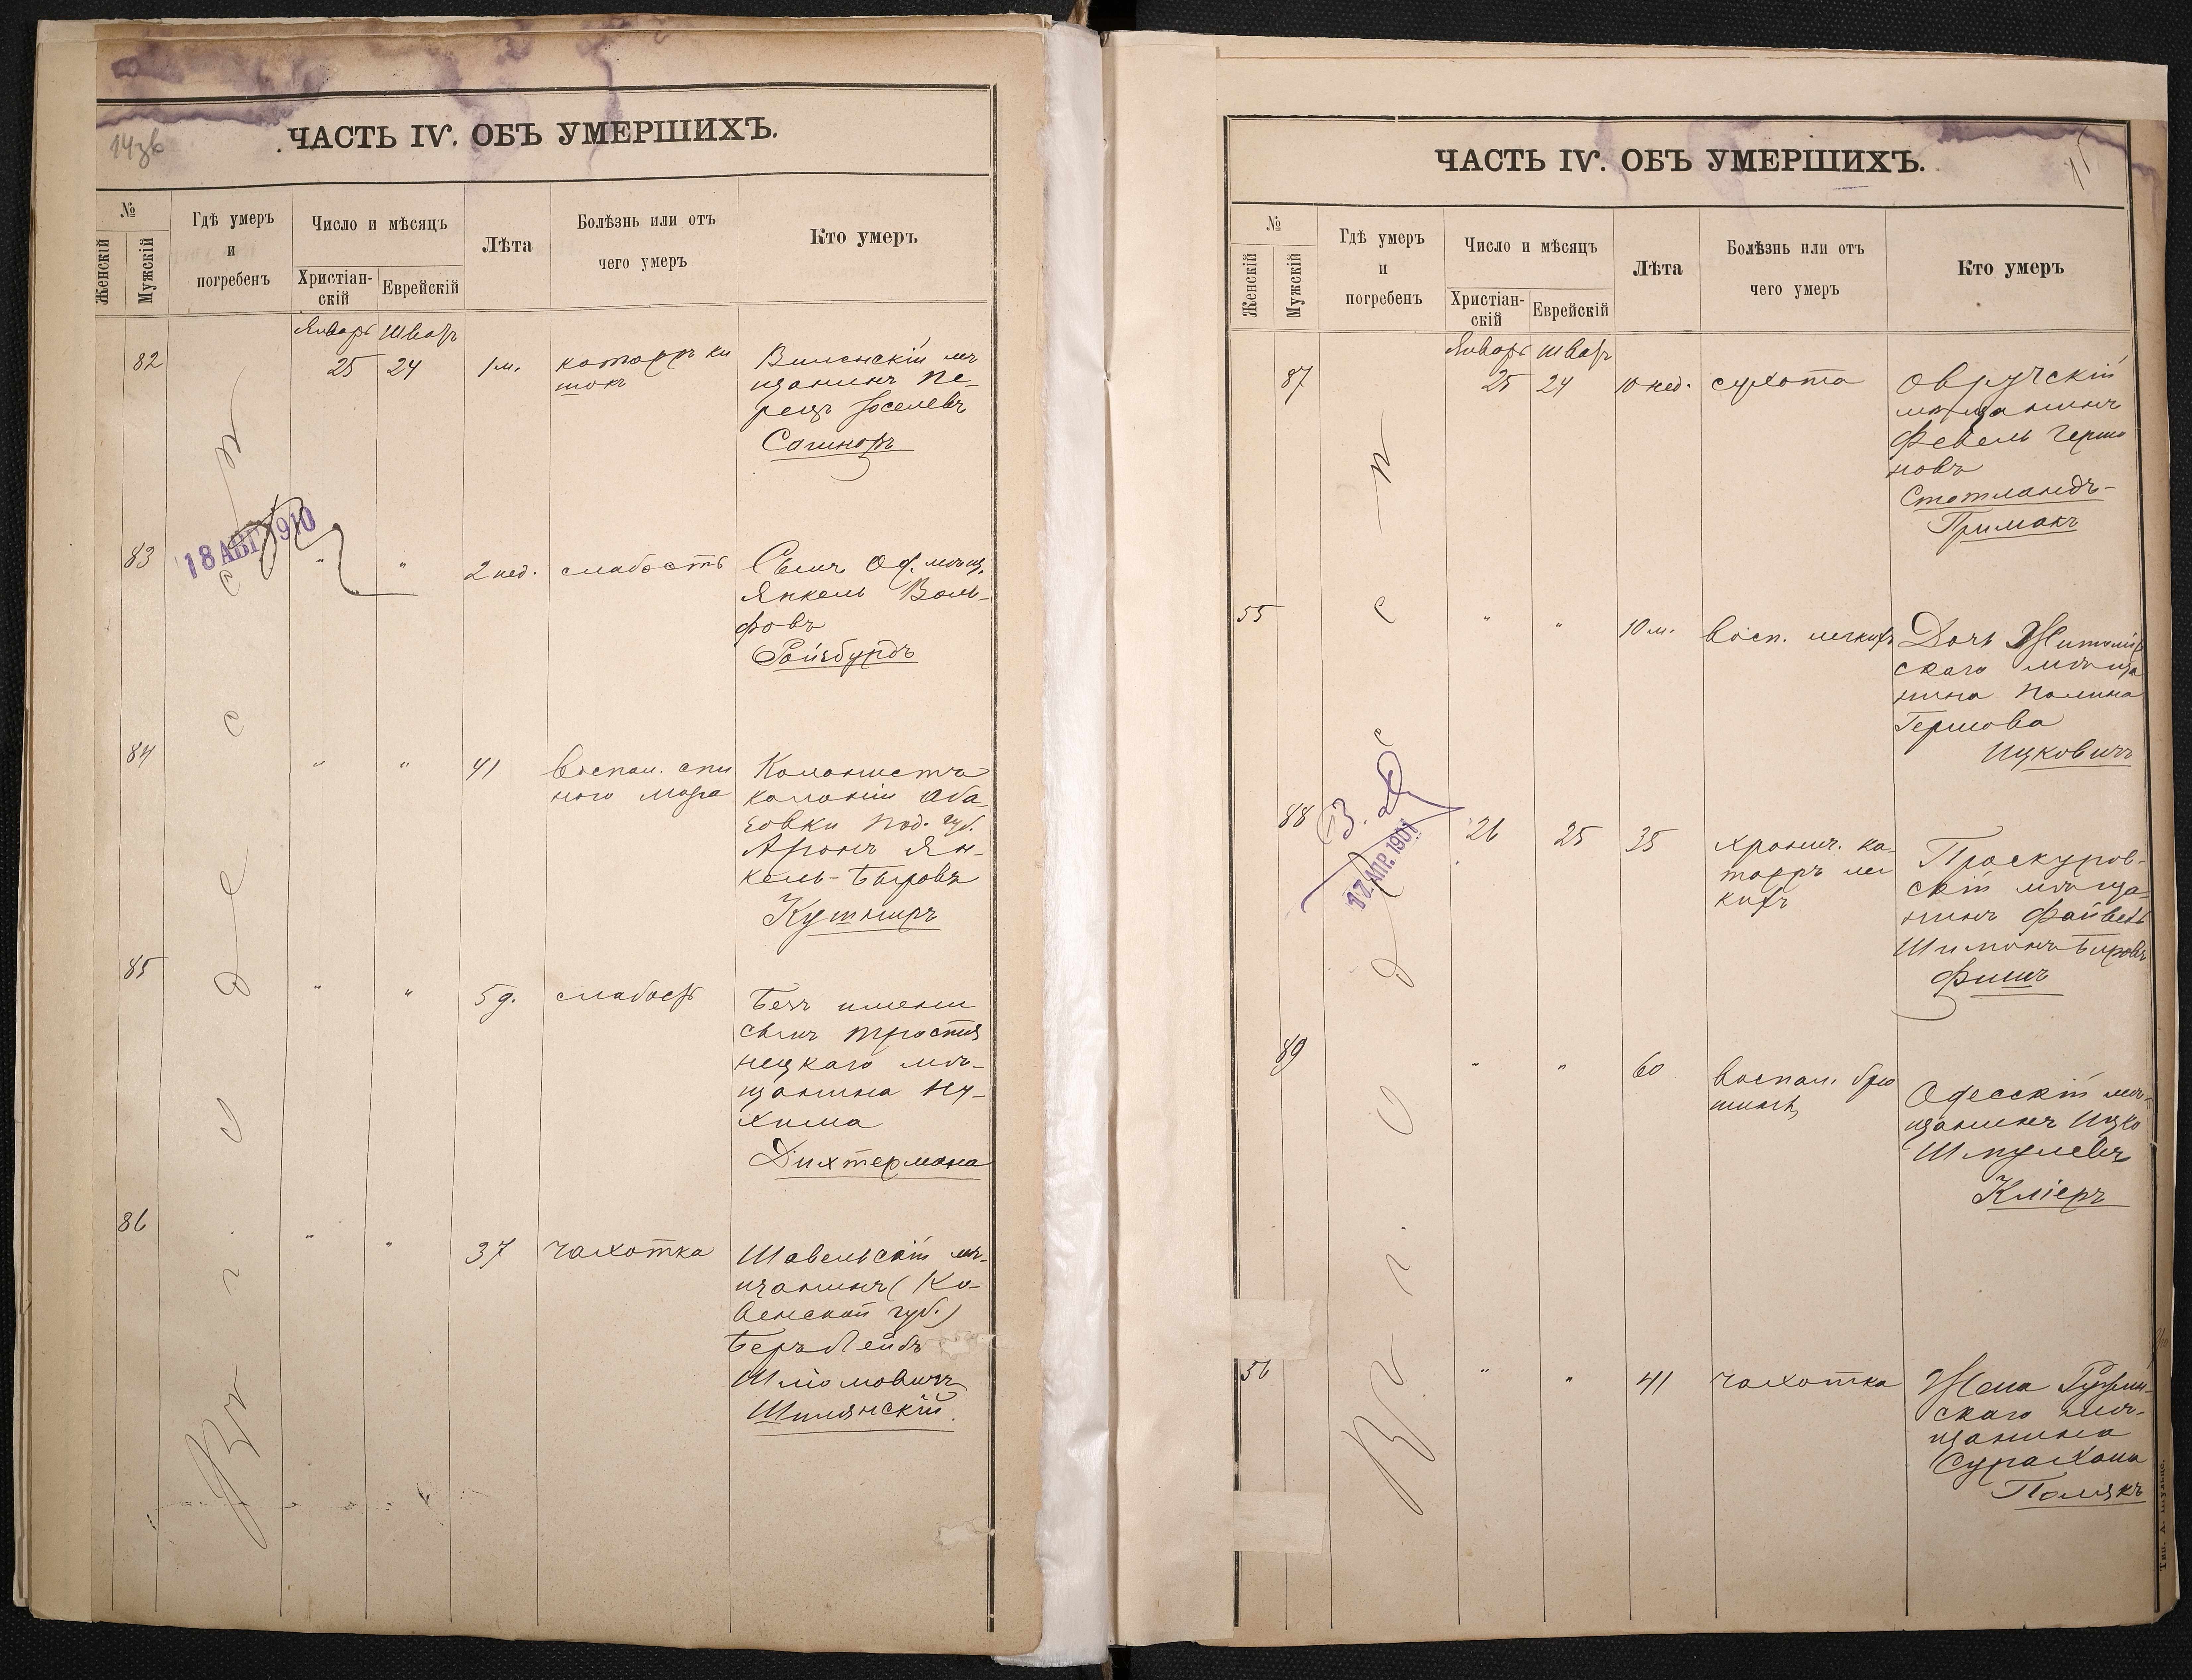 14 зв
ЧАСТЬ IV. ОБЪ УМЕРШИХЪ.
№
Женскій
Мужскій
Гдѣ умеръ
и
погребенъ
Число и мѣсяцъ
Христіан-
скій
Еврейскій
Лѣта
Болѣзнь или отъ
чего умеръ
Кто умеръ
Въ г. Одессѣ
18 АВГ 1910
Январь Шватъ
82 25 24 1 м. катарръ ки
шокъ
Виленскій мѣ
щанинъ Пе-
рецъ Іоселевъ
83 " " 2 нед. слабость
Сынъ Од. мѣщ.
Янкель Воль-
фовъ
Ройзбурдъ
84 " " 41 воспал. спи
ного мозга
Колонистъ
колоніи Аба
зовки Под. губ.
Аронъ Ян-
кель-Беровъ
Кушниръ
85 " " 5 д. слабость
Безъ имени
сынъ тростя
нецкаго мѣ-
щанина Ну-
хима
Дихтермана
86 " " 37 чахотка
Шавельскій мѣ-
щанинъ (Ко-
венской губ.)
Беръ Лейбъ
Шломовичъ
15
ЧАСТЬ IV. ОБЪ УМЕРШИХЪ.
№
Женскій
Мужскій
Гдѣ умеръ
и
погребенъ
Число и мѣсяцъ
Христіан-
скій
Еврейскій
Лѣта
Болѣзнь или отъ
чего умеръ
Кто умеръ
Въ г. Одессѣ
17 АПР. 1901
Январь Шватъ
87 25 24 10 нед. сухота
Овручскій
мѣщанинъ
Февель Герш
новъ
Стотландъ-
Примакъ
55 " " 10 м. восп. легкихъ
Дочь Житомір
скаго мѣща
нина Полина
Гершова
Ицковичъ
88 26 25 35 хронич. ка-
тарръ лег
кихъ
Проскуров-
скій мѣща
нинъ Файвель
Шимонъ Беровъ
Фишъ
89 " " 60 воспал. брю
шины
Одесскій мѣ-
щанинъ Ицко
Шмулевъ
Кліеръ
56 " " 41 чахотка
Жена
скаго мѣ-
щанина
Сура Хана
Полякъ
Тип. А. Шульце.